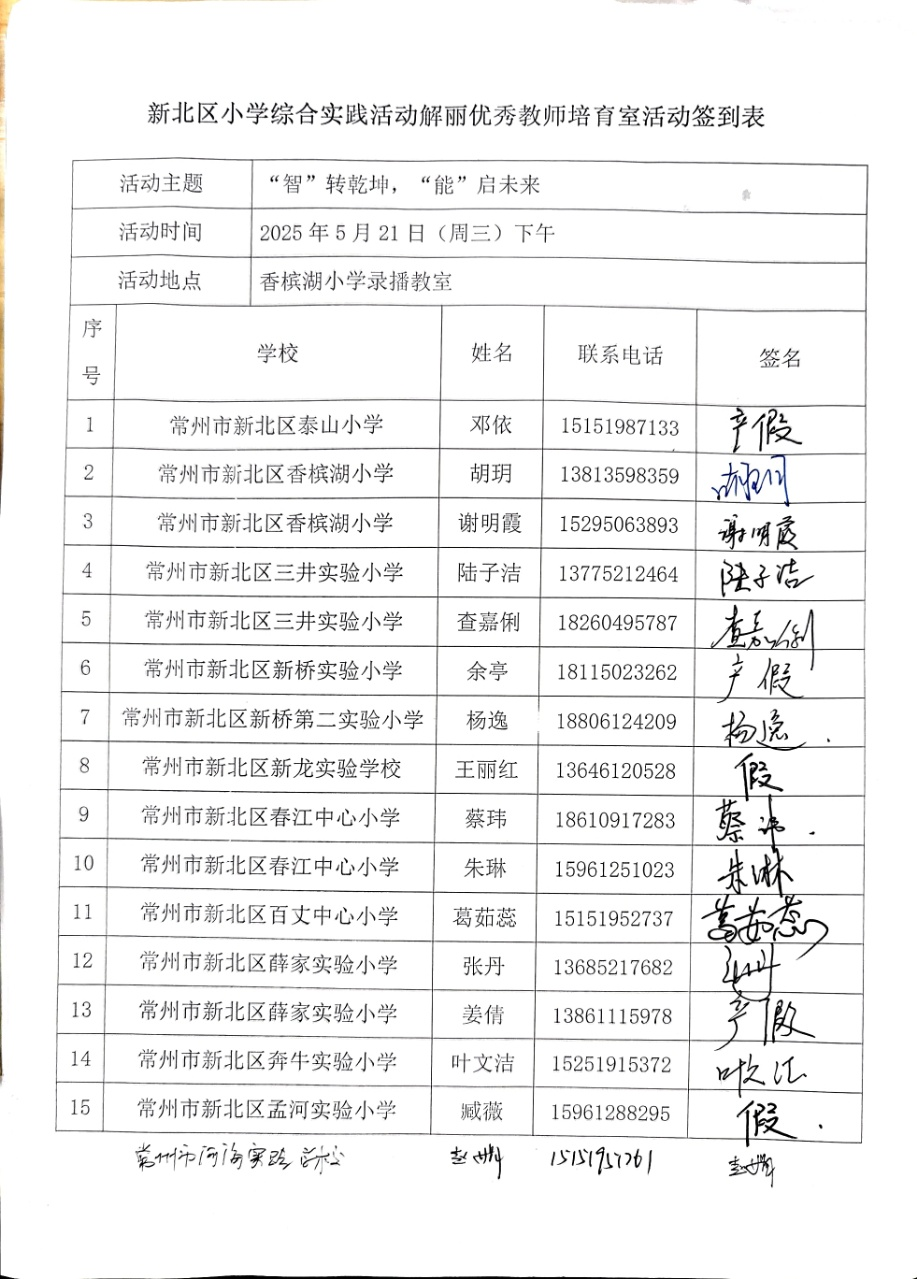 新北区小学综合实践活动解丽优秀教师培育室活动签到表
活动主题 “智”转乾坤，“能”启未来
活动时间 2025 年 5 月 21 日（周三）下午
活动地点 香槟湖小学录播教室
序号 学校 姓名 联系电话 签名
1 常州市新北区泰山小学 邓依 15151987133 产假
2 常州市新北区香槟湖小学 胡玥 13813598359 胡玥
3 常州市新北区香槟湖小学 谢明霞 15295063893 谢明霞
4 常州市新北区三井实验小学 陆子洁 13775212464 陆子洁
5 常州市新北区三井实验小学 查嘉俐 18260495787 查嘉俐
6 常州市新北区新桥实验小学 余亭 18115023262 产假
7 常州市新北区新桥第二实验小学 杨逸 18806124209 杨逸
8 常州市新北区新龙实验学校 王丽红 13646120528 假
9 常州市新北区春江中心小学 蔡玮 18610917283 蔡玮
10 常州市新北区春江中心小学 朱琳 15961251023 朱琳
11 常州市新北区百丈中心小学 葛茹蕊 15151952737 葛茹蕊
12 常州市新北区薛家实验小学 张丹 13685217682 张丹
13 常州市新北区薛家实验小学 姜倩 13861115978 产假
14 常州市新北区奔牛实验小学 叶文洁 15251915372 叶文洁
15 常州市新北区孟河实验小学 臧薇 15961288295 假
常州市河海实验学校 赵 15151957261 赵